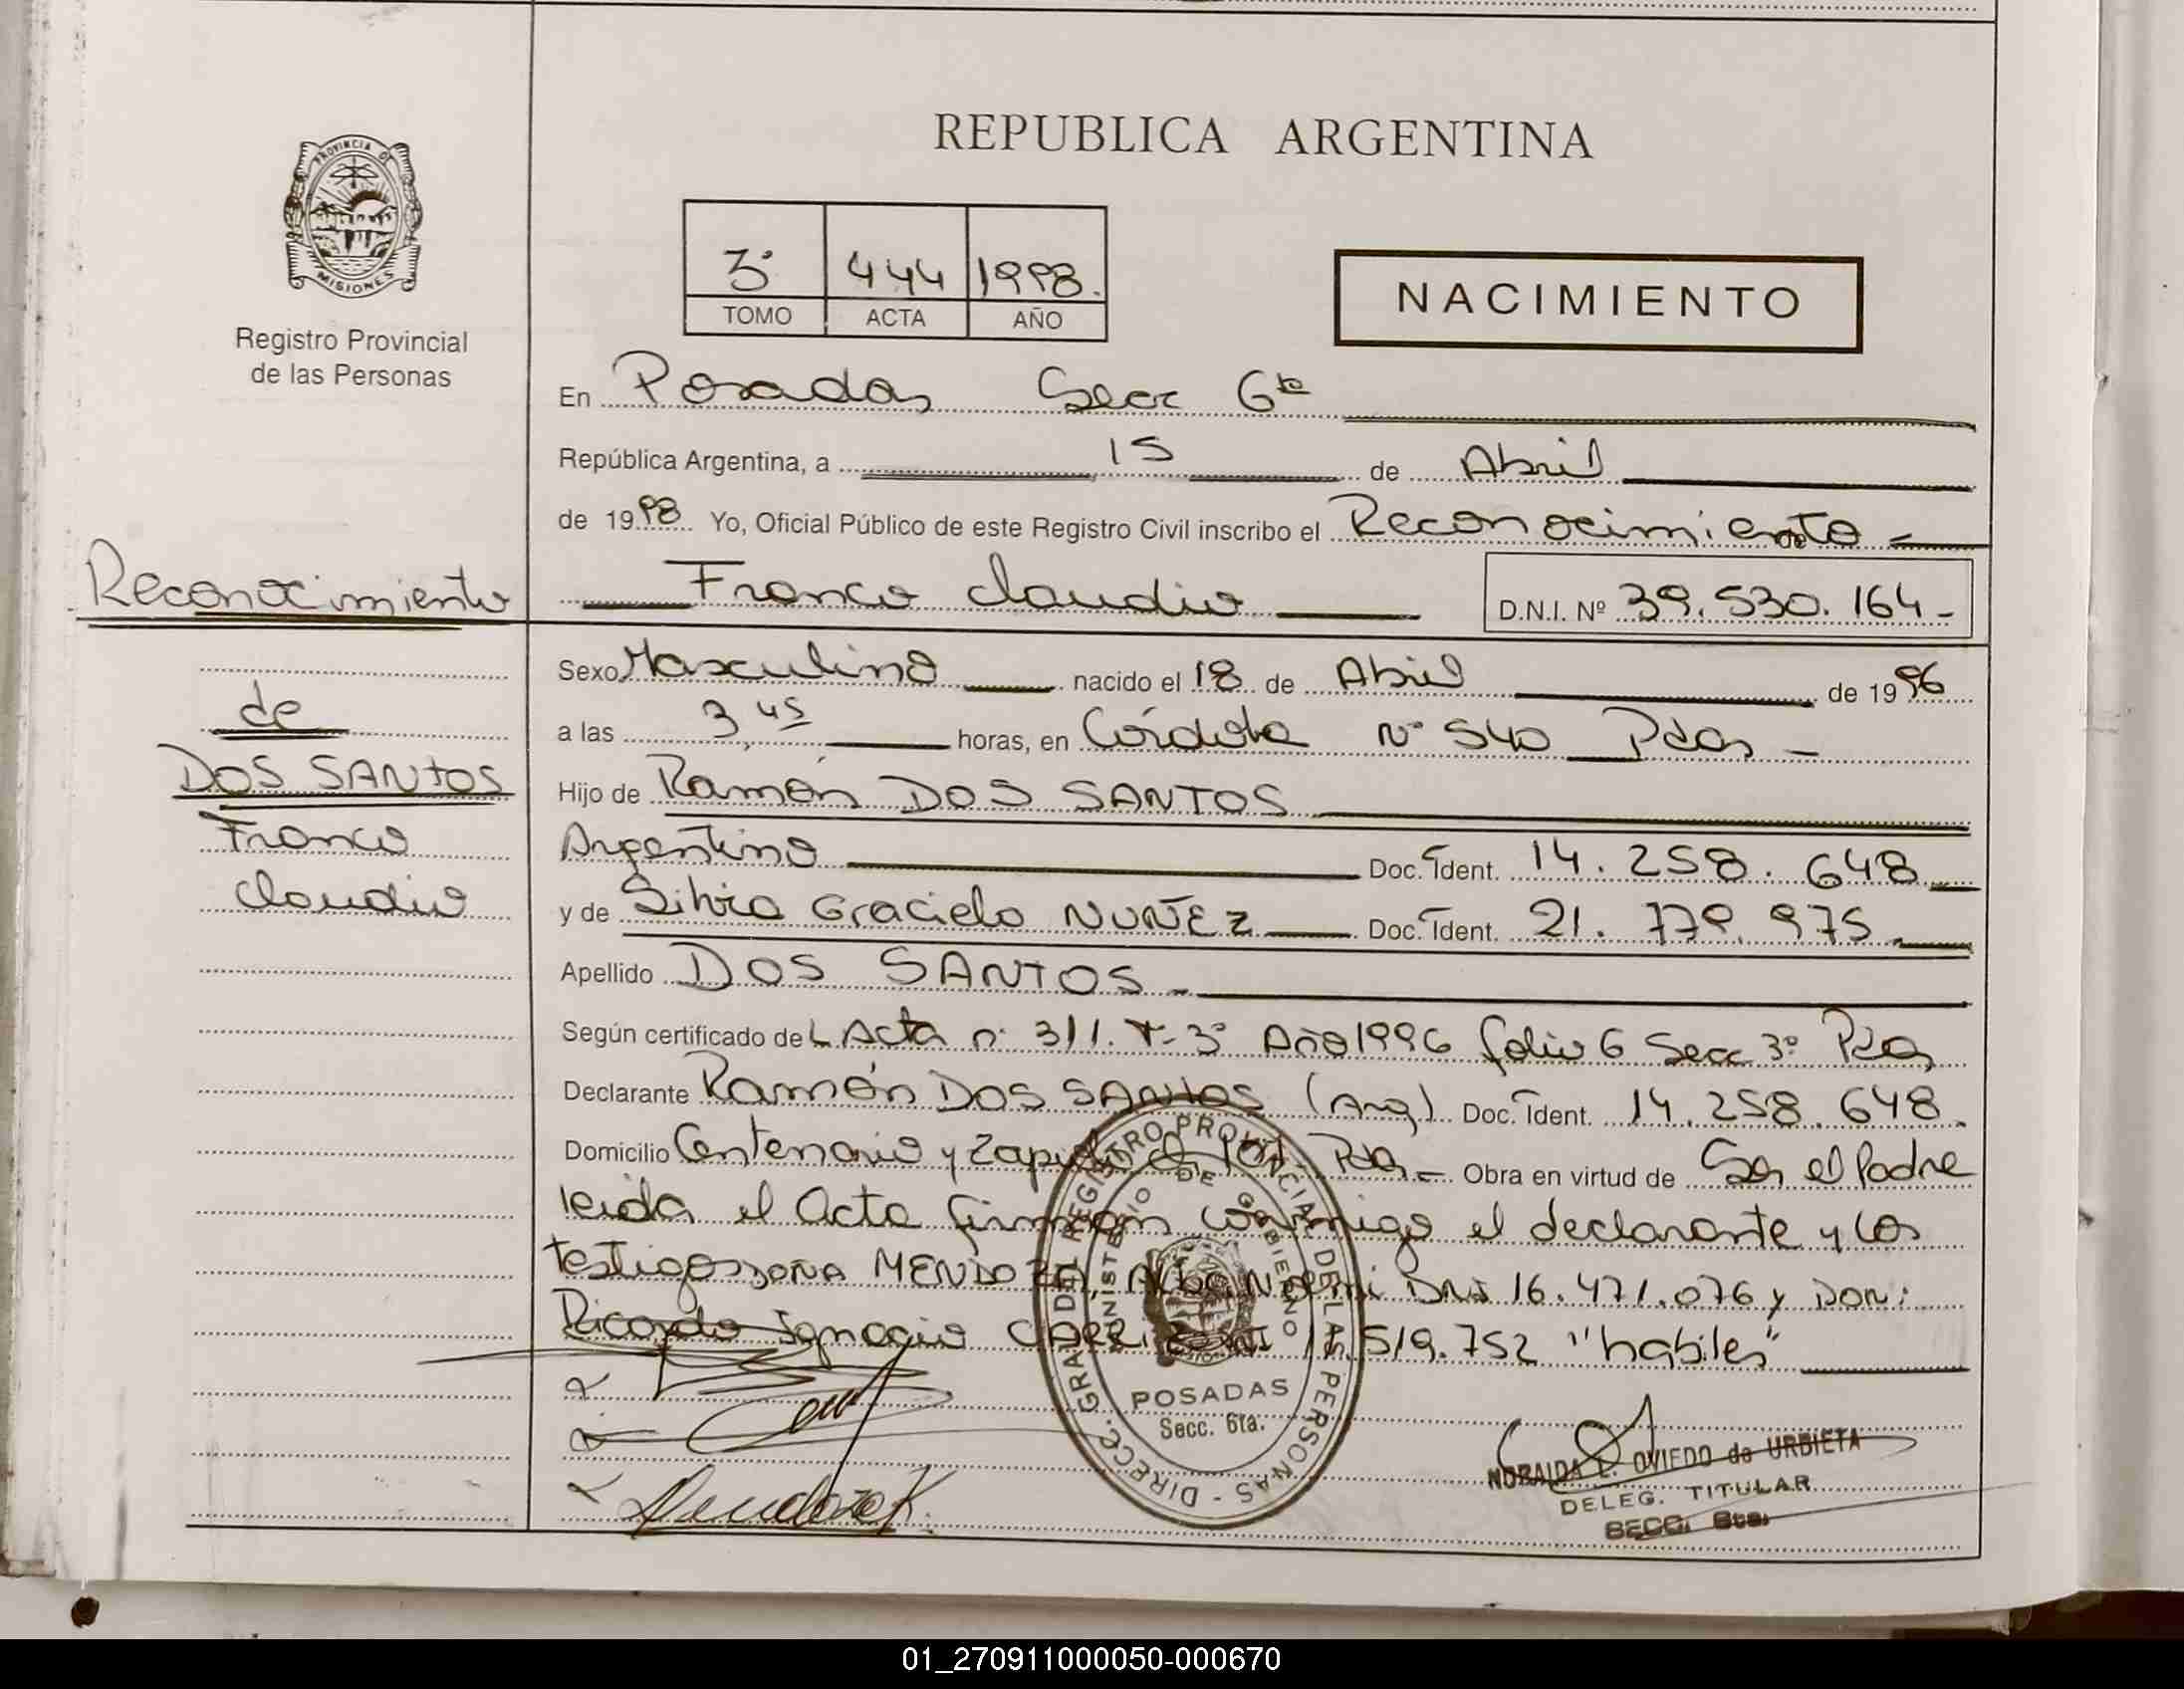 REPUBLICA ARGENTINA
PROVINCIA DE
MISIONES
Registro Provincial
de las Personas
3º 444 1998.
TOMO ACTA AÑO
NACIMIENTO
En Posadas Secc 6ta
República Argentina, a 15 de Abril
de 1998 Yo, Oficial Público de este Registro Civil inscribo el Reconocimiento de
Franco Claudio D.N.I. Nº 39.530.164-
Reconocimiento
de
DOS SANTOS
Franco
Claudio
Sexo Masculino nacido el 18 de Abril de 1996
a las 3,45 horas, en Córdoba Nº 540 Pdas -
Hijo de Ramón DOS SANTOS
Argentino Doc. Ident. 14.258.648
y de Silvia Graciela NUÑEZ Doc. Ident. 21.779.975
Apellido DOS SANTOS -
Según certificado del Acta nº 311. T-3º Año 1996 folio 6 Secc 3º Pdas
Declarante Ramón DOS SANTOS (Arg) Doc. Ident. 14.258.648.
Domicilio Centenario y Pdas - Obra en virtud de Ser el Padre
leida el Acta firman conmigo el declarante y los
testigos DOÑA MENDOZA, Alba Noemi DNI 16.471.076 y DON:
Ricardo Ignacio 519.752 "habiles"
DIRECC. GRAL. DEL REGISTRO PROVINCIAL DE LAS PERSONAS -
MINISTERIO DE GOBIERNO
POSADAS
Secc. 6ta.
NORAIDA L. OVIEDO de URBIETA
DELEG. TITULAR
SECC. 6ta.
01_270911000050-000670